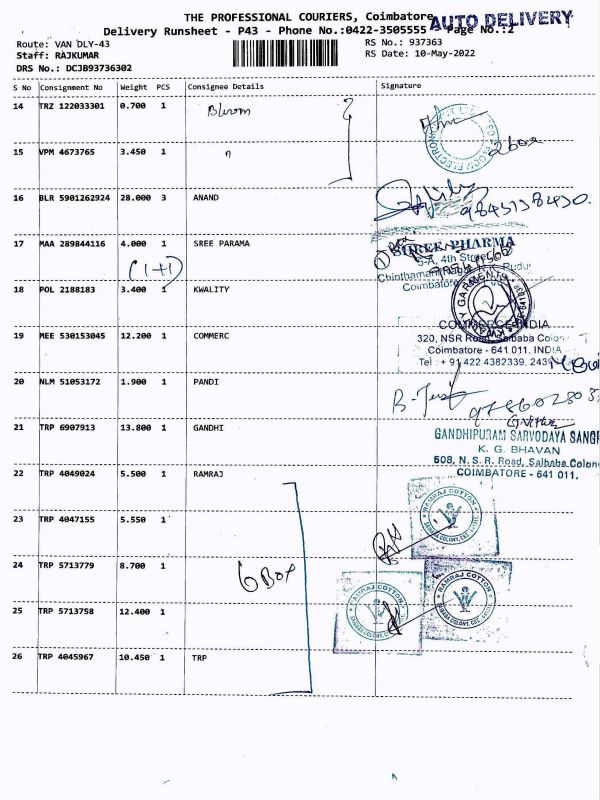 THE PROFESSIONAL COURIERS, Coimbatore
AUTO DELIVERY
Delivery Runsheet - P43 - Phone No.:0422-3505555 Page No.:2
Route: VAN DLY-43
RS No.: 937363
Staff: RAJKUMAR
RS Date: 10-May-2022
DRS No.: DCJB93736302
S No Consignment No Weight PCS Consignee Details Signature
14 TRZ 122033301 0.700 1
15 VPM 4673765 3.450 1 "
16 BLR 5901262924 28.000 3 ANAND
17 MAA 289844116 4.000 1 SREE PARAMA
SHREE PHARMA
4th Street
(1+1)
Coimbatore
18 POL 2188183 3.400 1 KWALITY
KWALITY GARMENTS
COMMERCE INDIA
19 MEE 530153045 12.200 1 COMMERC
320, NSR Road, Saibaba Colon
Coimbatore - 641 011, INDIA
Tel : + 91 422 4382339, 243
20 NLM 51053172 1.900 1 PANDI
21 TRP 6907913 13.800 1 GANDHI
GANDHIPURAM SARVODAYA SANG
K. G. BHAVAN
508, N. S. R. Road, Saibaba Colon
COIMBATORE - 641 011.
22 TRP 4049024 5.500 1 RAMRAJ
RAMRAJ COTTON
23 TRP 4047155 5.550 1
24 TRP 5713779 8.700 1
6 Box
RAMRAJ COTTON
RAMRAJ COTTON
25 TRP 5713758 12.400 1
26 TRP 4045967 10.450 1 TRP